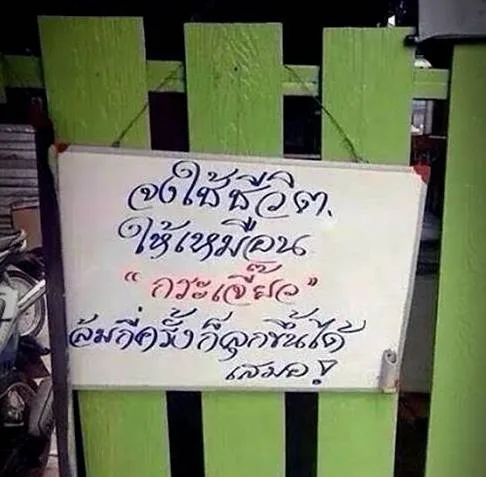 จงใช้ชีวิต.
ให้เหมือน
"กระเจี๊ยว"
ล้มกี่ครั้งก็ลุกขึ้นได้
เสมอ!